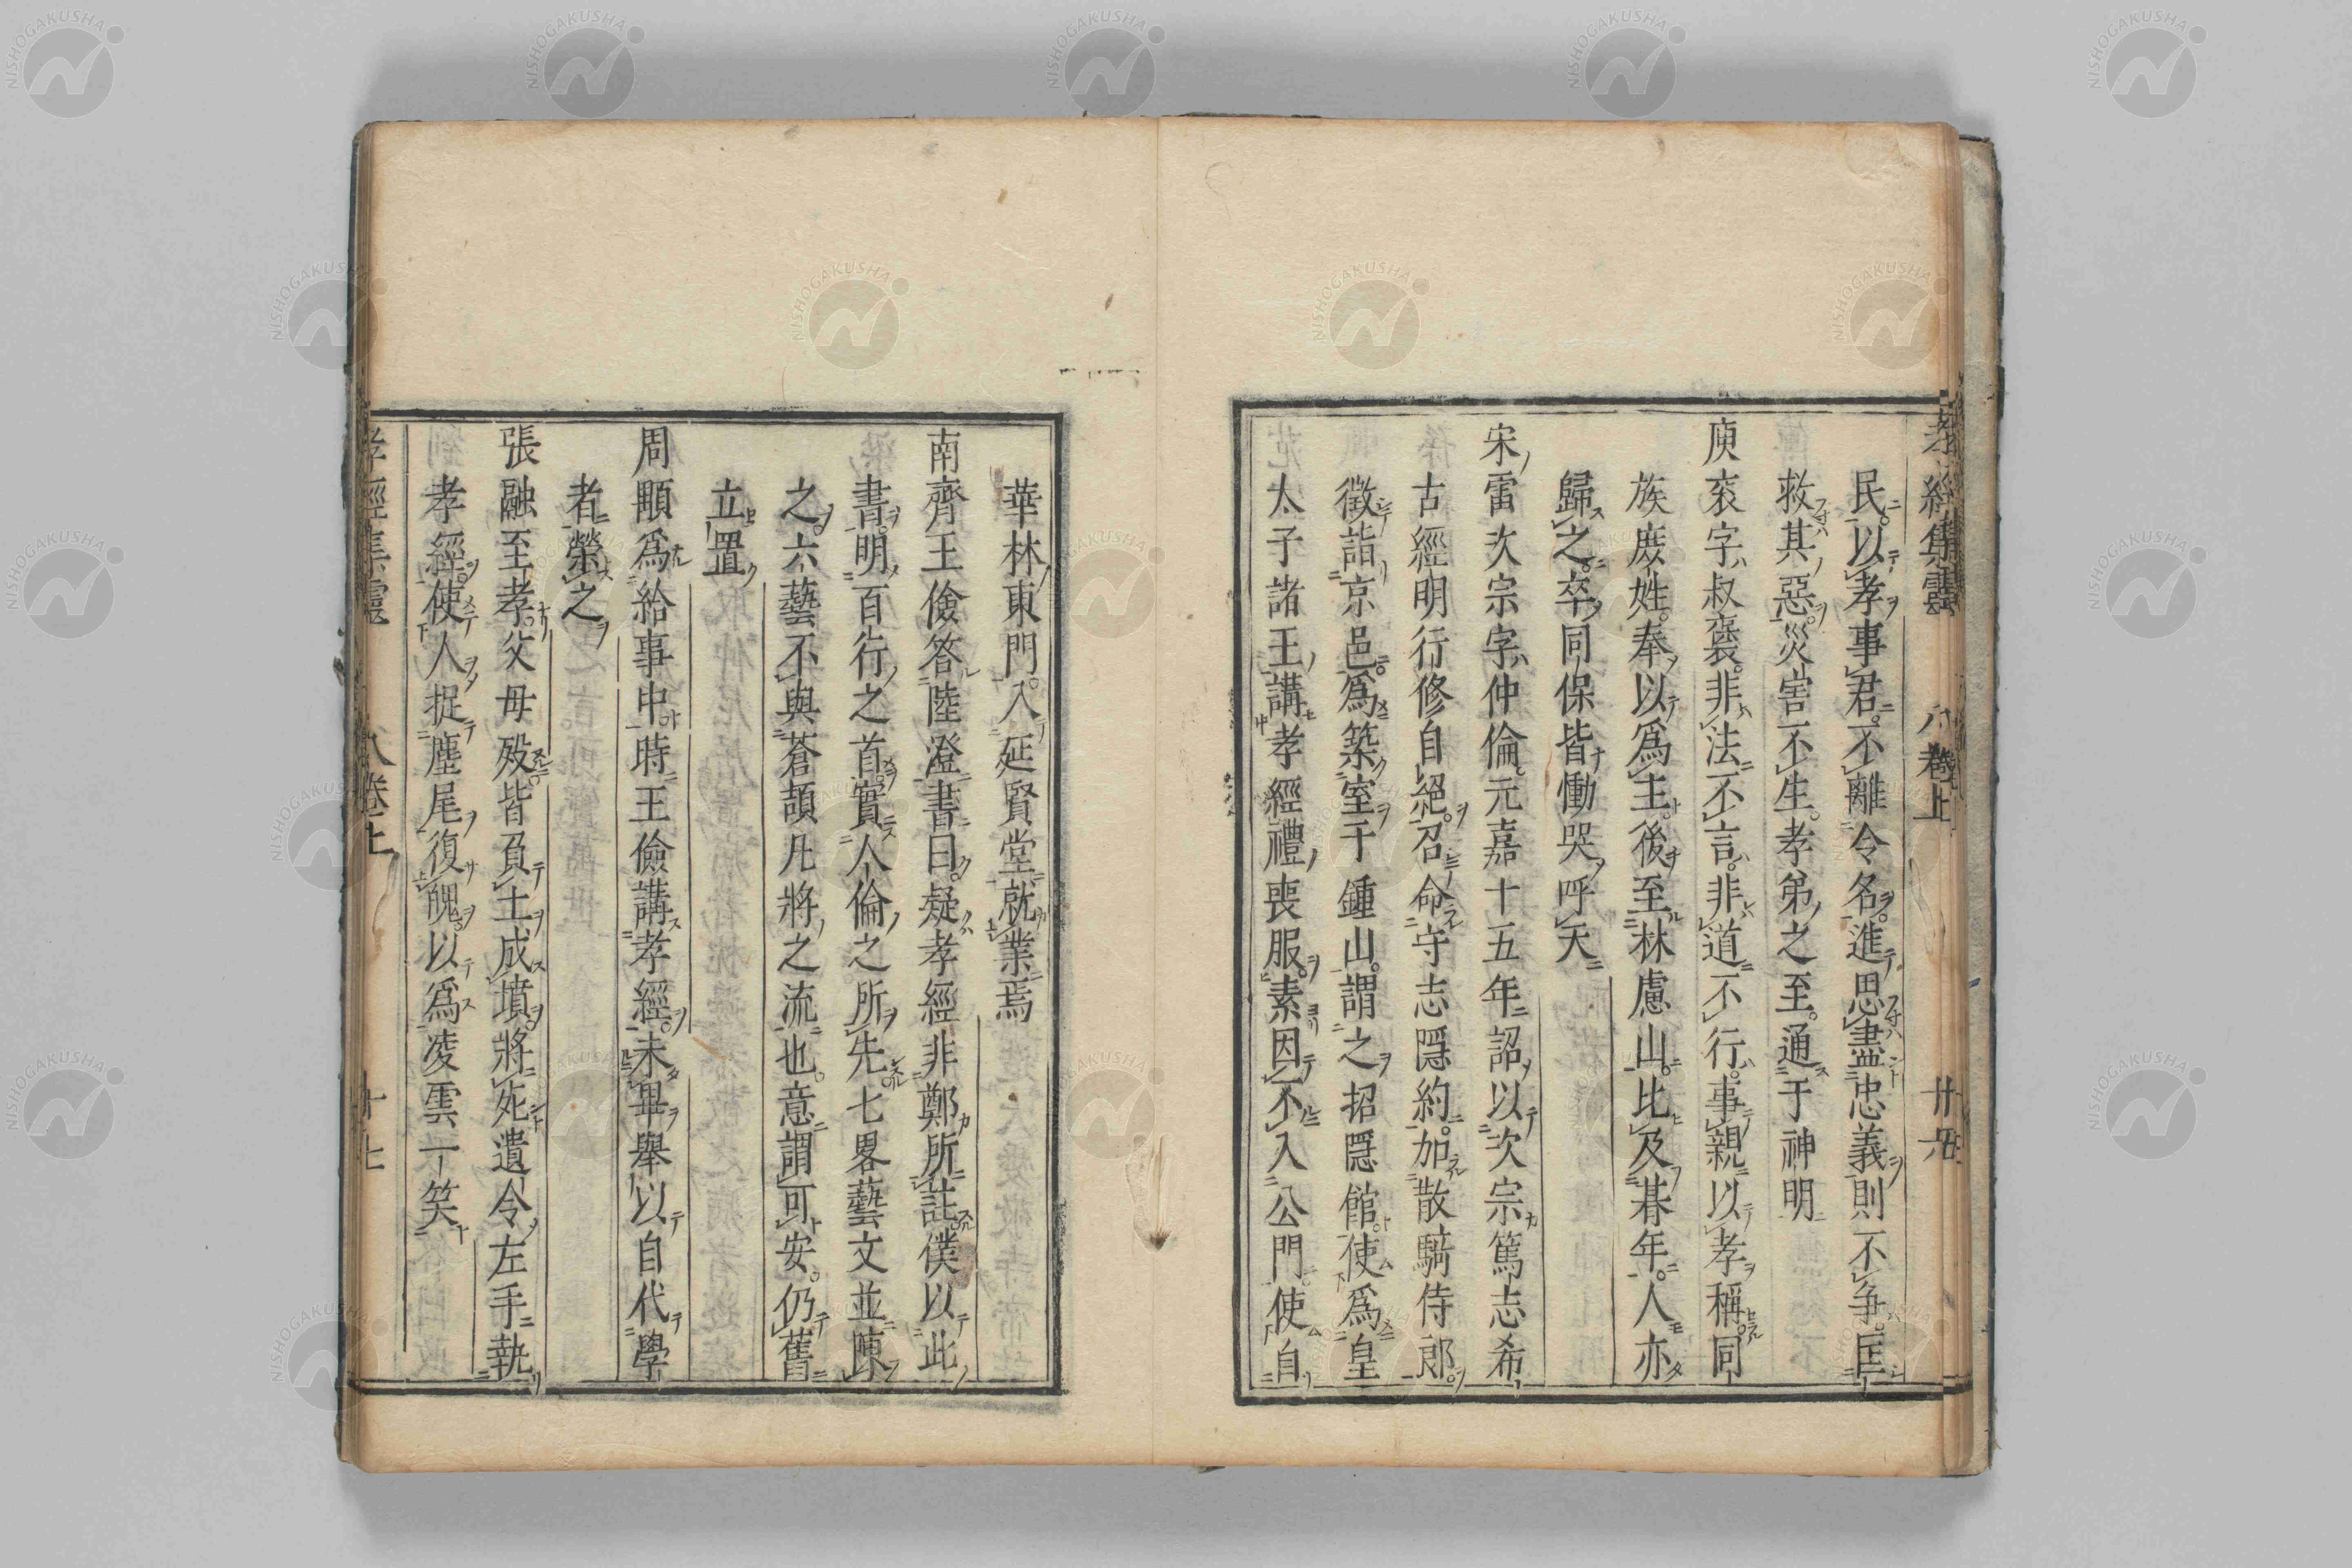 民以孝事君不離令名進思盡忠義則不争匡
救其惡災害不生孝弟之至通于神明
庾衮字叔褒非法不言非道不行事親以孝稱同
族庶姓奉以爲主後至林慮山比及朞年人亦
歸之卒同保皆慟哭呼天
宋雷次宗字仲倫元嘉十五年詔以次宗篤志希
古經明行修自絕召命守志隱約加散騎侍郎
徵詣京邑爲築室于鍾山謂之招隱館使爲皇
太子諸王講孝經禮喪服素因不入公門使自
華林東門入延賢堂就業焉
南齊王儉答陸澄書曰疑孝經非鄭所註僕以此
書明百行之首實人倫之所先七畧藝文並陳
之六藝不與蒼頡凡將之流也意謂可安仍舊
立置
周顒爲給事中時王儉講孝經未畢舉以自代學
者榮之
張融至孝父母歿皆負土成墳將死遺令左手執
孝經使人捉塵尾復魄以爲凌雲一笑
孝經集靈 八卷上
NISHOGAKUSHA